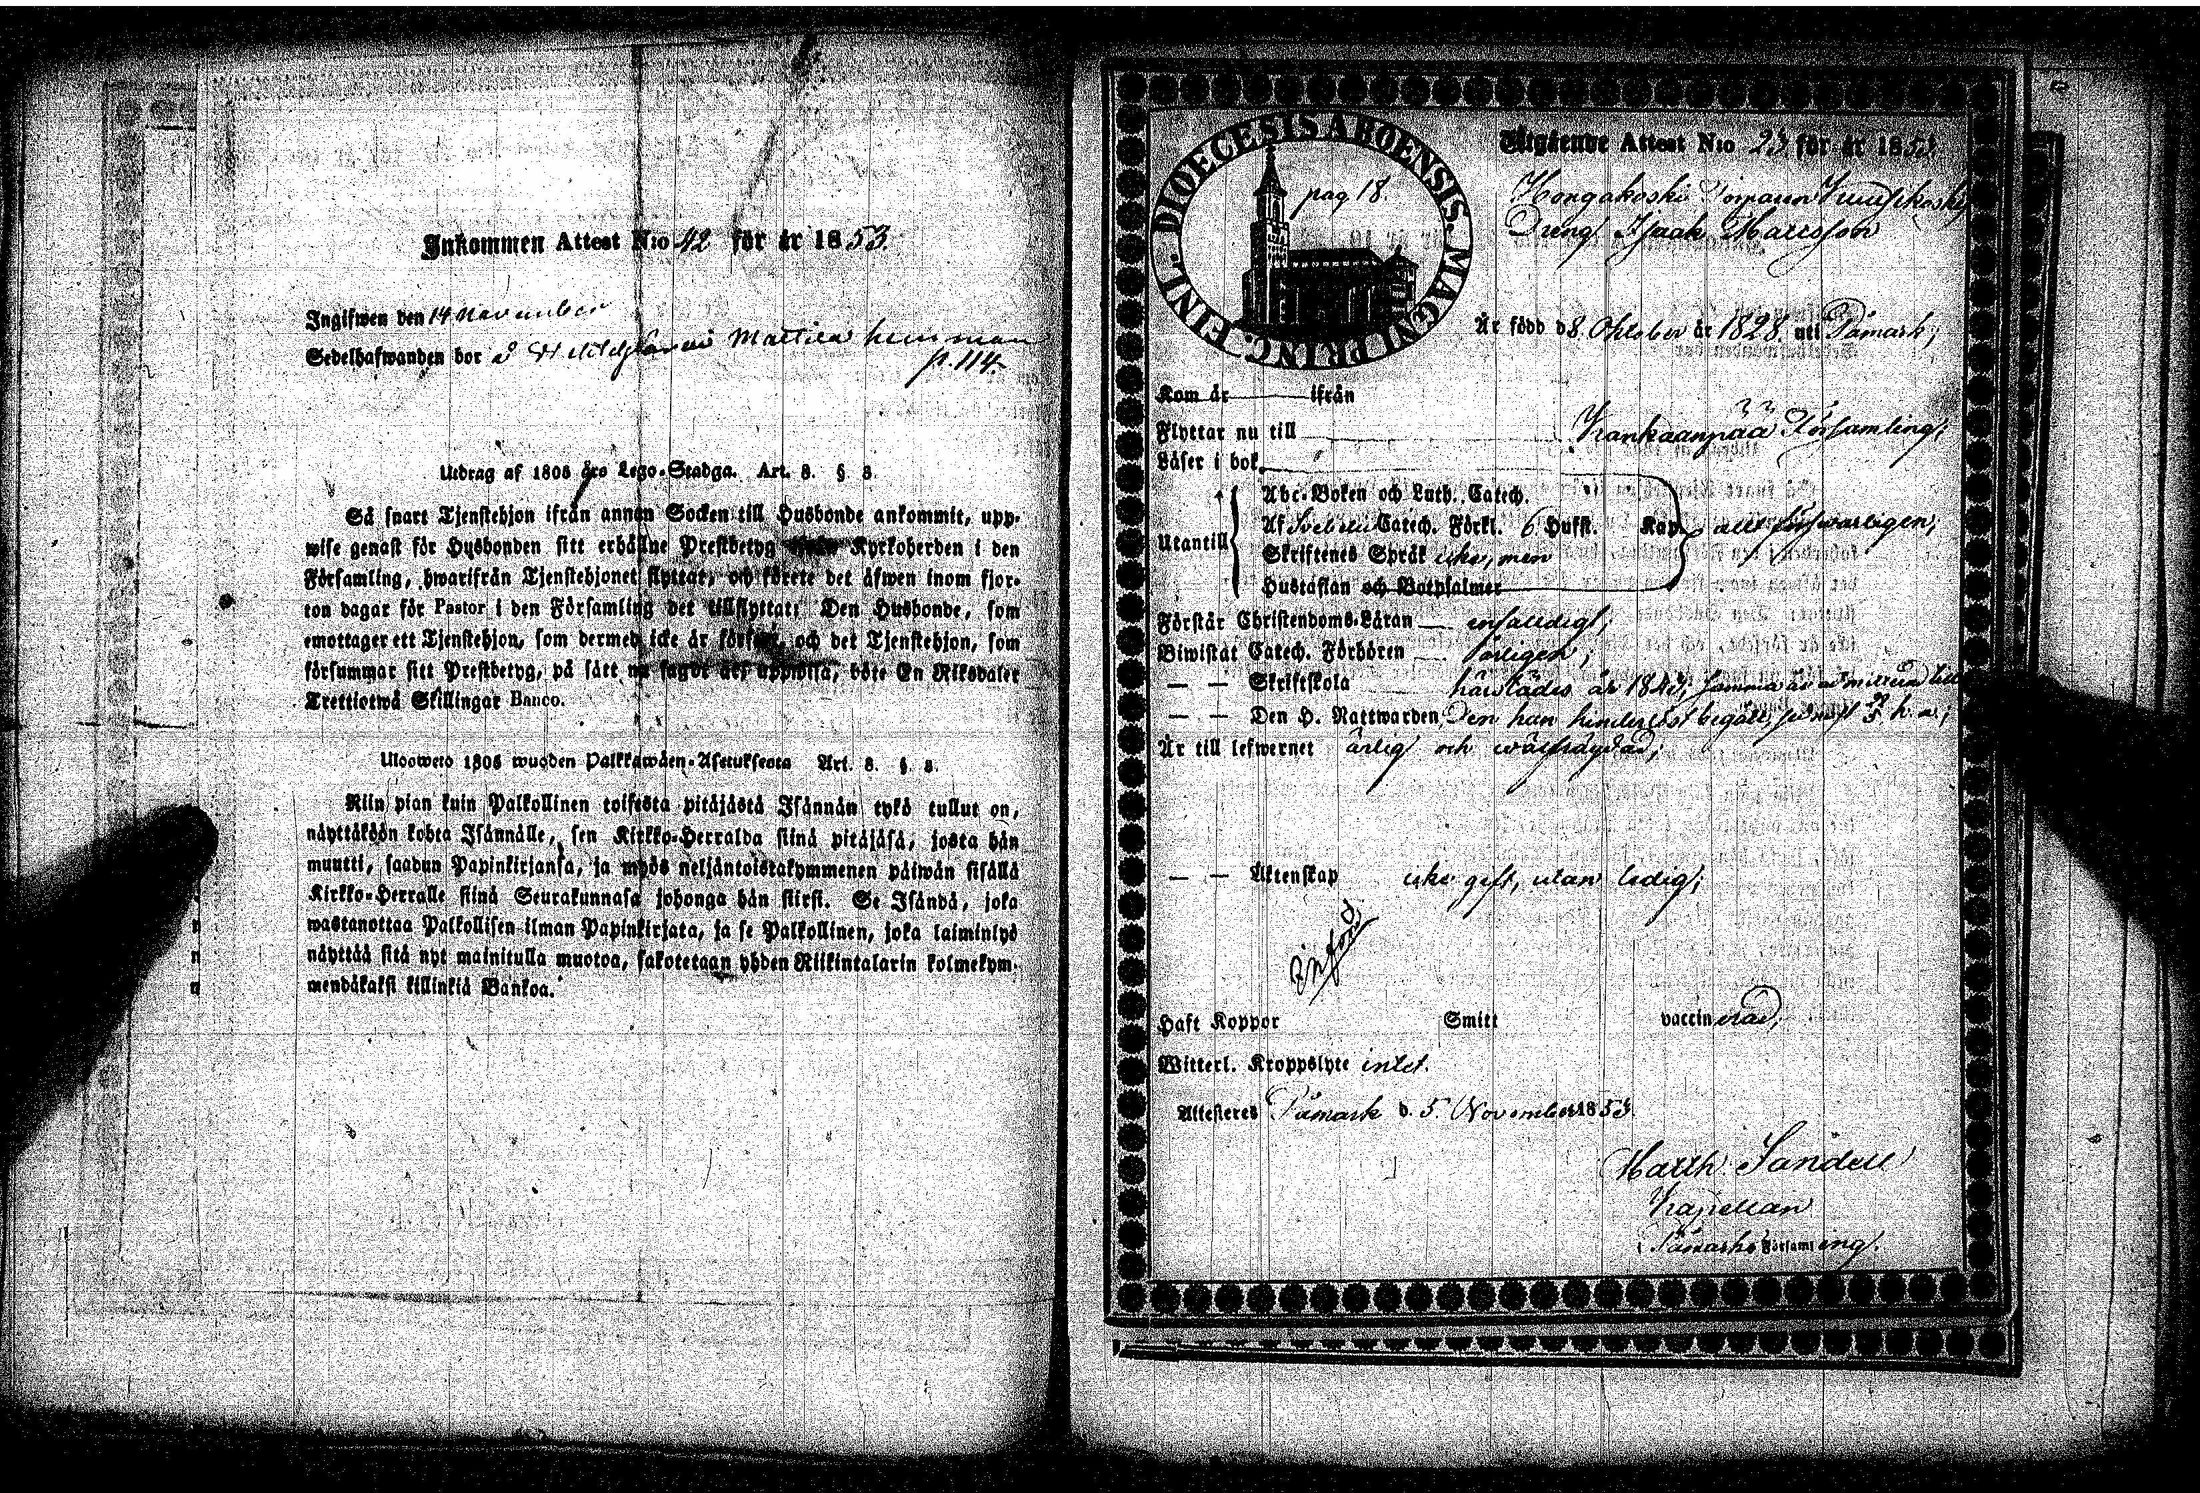 Inkommen Attest N:o 42 för år 1853
Ingifwen den 14 november
Sedelhafwanden bor å Mattila hemman
p. 114
Utdrag af 1805 års Lego-Stadga. Art. 3. § 3.
Så snart Tjenstehjon ifrån annan Socken till Husbonde ankommit, upp-
wise genast för Husbonden sitt erhållne Prestbetyg ifrån Kyrkoherden i den
Församling, hwarifrån Tjenstehjonet flyttat, och förete det äfwen inom fjor-
ton dagar för Pastor i den Församling det tillflyttat; Den Husbonde, som
emottager ett Tjenstehjon, som dermed icke är försedt, och det Tjenstehjon, som
försummar sitt Prestbetyg, på sätt nu sagdt är, uppwisa, böte En Riksdaler
Trettiotwå Skillingar Banco.
Ulosweto 1805 wuoden Palkkawäen-Asetuksesta Art. 3. §. 3.
Niin pian kuin Palkollinen toisesta pitäjästä Isännän tykö tullut on,
näyttäköön kohta Isännälle, sen Kirkko-Herralda siinä pitäjäsä, josta hän
muutti, saadun Papinkirjansa, ja myös neljäntoistakymmenen päiwän sisällä
Kirkko-Herralle siinä Seurakunnasa johonga hän siirsi. Se Isändä, joka
wastanottaa Palkollisen ilman Papinkirjata, ja se Palkollinen, joka laiminlyö
näyttää sitä nyt mainitulla muotoa, sakotetaan yhden Riikintalarin kolmekym-
mendäkaksi killinkiä Bankoa.
DIOECESIS ABOENSIS. MAGNI PRINC. FINL.
pag 18.
Utgående Attest N:o 23 för år 1853
Hongakoski
Dreng Isaak Mattsson
Är född d 8 Oktober år 1828. uti Påmark;
Kom år ifrån
Flyttar nu till Kankaanpää Församling;
Läser i bok
Utantill
Abc-Boken och Luth. Catech.
Af Svebelii Catech. Förkl. 6 Hufst. Kap. allt försvarligen;
Skriftenes Språk icke, men
Hustaflan och Botpsalmer
Förstår Christendoms-Läran enfaldigt;
Biwistat Catech. Förhören årligen;
— — Skriftskola härstädes år 1843; samma år admitterad till
— — Den H. Nattwarden, Den han hinderlöst begått, senast h. a;
Är till lefwernet ärlig och wälfrägdad;
— — Äktenskap icke gift, utan ledig;
Införd
Haft Koppor Smitt vaccinerad;
Witterl. Kroppslyte intet.
Attesteras Påmark d. 5 November 1853
Matth Sandell
Kapellan
i Påmarks Församling.